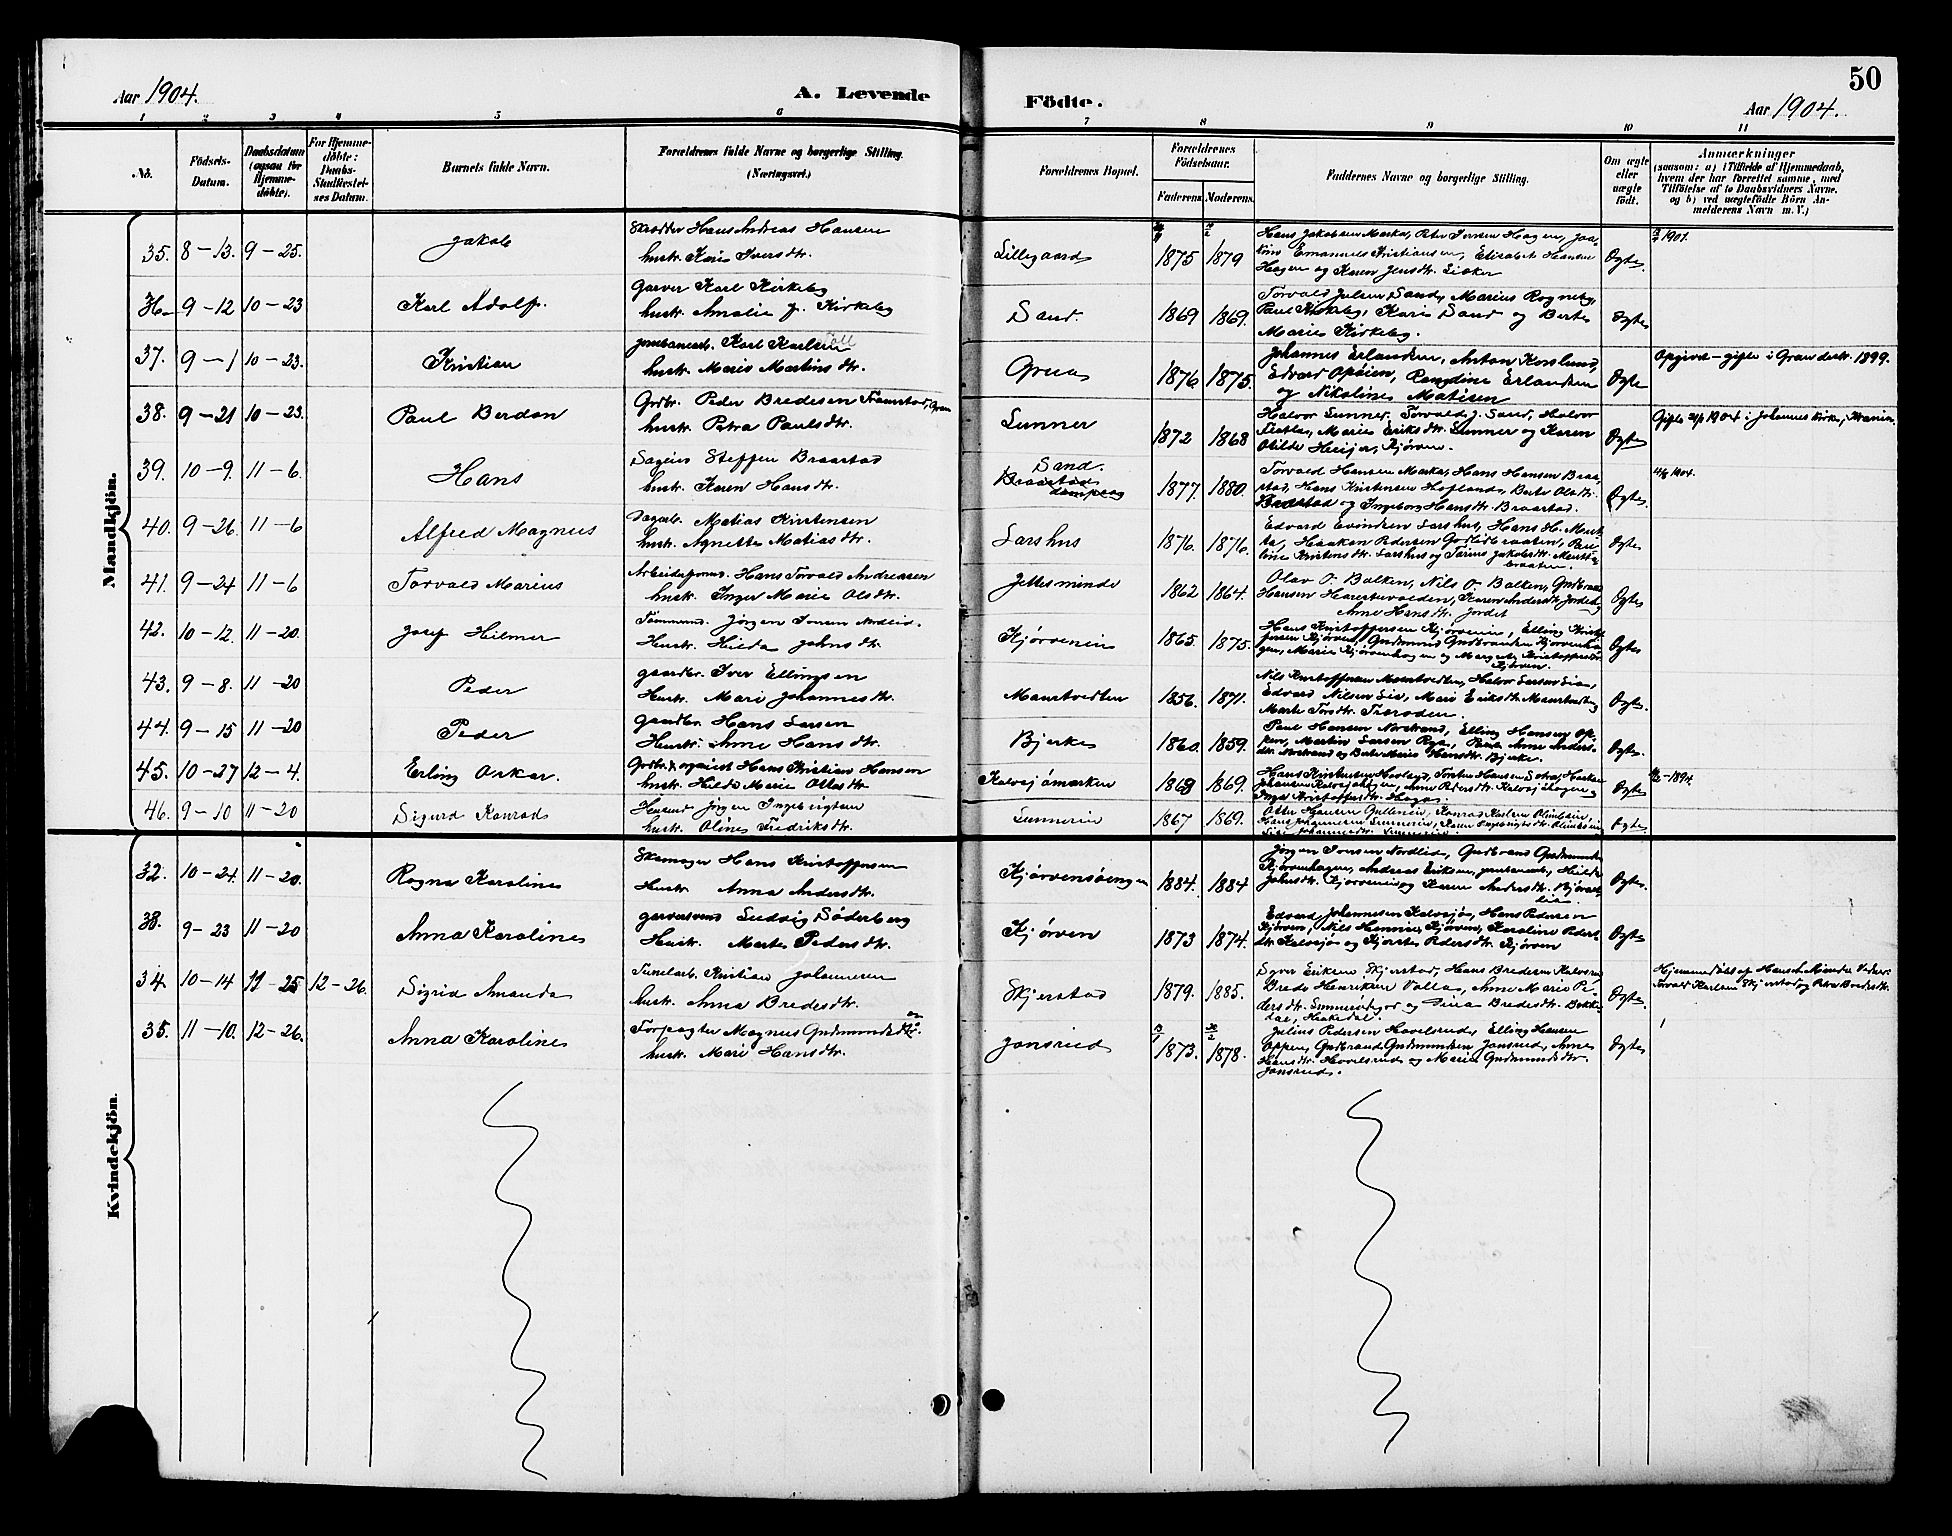 Aar 1904.
A. Levende
Födte.
50
Aar 1904.
1 2 3 4 5 6 7 8 9 10 11
No.
Födsels-
Datum.
Daabsdatum
(ogsaa for
Hjemme-
döbte).
For Hjemme-
döbte:
Daabs-
Stadfæstel-
ses Datum.
Barnets fulde Navn.
Forældrenes fulde Navne og borgerlige Stilling.
(Næringsvei.)
Forældrenes Bopæl.
Forældrenes
Födselsaar.
Faderens. Moderens.
Faddernes Navne og borgerlige Stilling.
Om ægte
eller
uægte
födt.
Anmærkninger
(saasom: a) i Tilfælde af Hjemmedaab,
hvem der har forrettet samme, med
Tilföielse af to Daabsvidners Navne,
og b) ved uægtefödte Börn An-
melderens Navn m. V.)
Mandkjön.
35. 8-13. 9-25. Jakob
Skrædder Hans Andreas Hansen
hustr. Kari Iversdtr.
Lillegaard 1875 1879
Hans Jakobsen Marka, Peter Iversen Hagen,
Emanuel Kristiansen, Elisabet Hansen
Hagen og Karen Jensdtr.
Ægte 1901.
36. 9-12 10-23 Karl Adolf.
Garver Karl Kirkeby
hustr. Amalie J. Kirkeby
Sand. 1869 1869.
Torvald Julsen Sand, Marius Rogneby,
Paul Kirkeby, Kari Sand og Berte
Marie Kirkeby.
Ægte
37. 9-1 10-23. Kristian
Jernbanearb. Karl Karlsen
hustr. Marie Martinsdtr.
Grua 1876 1875.
Johannes Erlandsen, Anton Korslund,
Edvard Opöien, Randine Erlandsen
og Nikoline Matisen
Ægte
Opgivet - gifte i Gran 1899.
38. 9-21 10-23. Paul Berdon
Grdbr. Peder Bredesen Framstad, Gran
hustr. Petra Paulsdtr.
Lunner 1872 1868
Halvor Lunner, Torvald J. Sand, Halvor
Marie Eriksdtr. Lunner og Karen
Otilde Heier, Kjørven.
Ægte
Gifte 1904 i Johannes Kirke, Krania.
39. 10-9. 11-6. Hans
Sageier Steffen Braastad
hustr. Karen Hansdtr.
Sand.
Braastad
1877. 1880.
Torvald Hansen Marka, Hans Hansen Braa-
stad, Hans Kristensen Hofland, Berte Olsdtr.
Braastad og Ingeborg Hansdtr. Braastad.
Ægte. 1904.
40. 9-26. 11-6 Alfred Magnus
Dagarb. Matias Kristensen
hustr. Agnette Matiasdtr.
Larshus 1876. 1876.
Edvard Evindsen Larshus, Hans H.
Haakon Pedersen
Kristensdtr. Larshus og Jakobsdtr.
Ægte
41. 9-24 11-6 Torvald Marius
Arbeidsform. Hans Torvald Andreassen
hustr. Inger Marie Olsdtr.
Jettesminde 1862 1864.
Olav O. Balken, Nils O. Balken, Gudbrand
Hansen Harestuvolden, Karen Andersdtr. Jordet
Anne Hansdtr. Jordet
Ægte
42. 10-12. 11-20. Josef Hilmer
Tömmerm. Jörgen Iversen Nordlid.
Hustr. Hilda Johnsdtr.
Kjørveneie 1865. 1875.
Hans Kristoffersen Kjørveneie, Elling Kristof-
fersen Kjørven, Gudmund Gudbrandsen Kjørvenha-
gen, Marie Kjørvenhagen og Margrete Kristoffersdtr.
Kjørven.
Ægte
43. 9-8. 11-20 Peder
gaardbr. Iver Ellingsen
Hustr. Mari Johannesdtr.
Maurtvedten 1856. 1871.
Nils Kristoffersen Maurtvedten, Halvor Larsen Lia,
Edvard Nilsen Lia, Mari Eriksdtr. Maurtvedten
Marte
Ægte.
44. 9-15 11-20 Peder
gaardbr. Hans Larsen
Hustr. Anne Hansdtr.
Bjerke 1860. 1859.
Paul Hansen Norstrand, Elling Hansen Op-
pen, Martin Larsen Rya, Anne Anders-
dtr. Norstrand og Berte Marie Hansdtr. Bjerke.
Ægte.
45. 10-27 12-4. Erling Oskar.
Grdbr. & organist Hans Kristian Hansen
hustr. Hilda Marie Olsdtr.
Kalvsjömarken 1868 1869.
Hans Kristensen Hovland, Torsten Hansen
Johansen Kalvsjöhagen, Anne Pedersdtr. Kalvsjöhagen
Inga Kristoffersdtr. Haga.
Ægte -1894.
46. 9-10 11-20 Sigurd Konrad
Husmd Jörgen Ingebrigtsen
hustr. Oline Fredriksdtr.
Lunnereie 1867 1869.
Otter Hansen Gulleneie, Konrad Karlsen
Hans Johannesen Lunnereie, Karen Ingebrigtsdtr.
Ægte.
Kvindekjön.
32. 10-24. 11-20. Ragna Karoline
Skomager Hans Kristoffersen
Hustr. Anna Andersdtr.
Kjørvensöiengen 1884. 1884
Jörgen Iversen Nordlid, Gudbrand Gudmundsen
Kjørvenhagen, Andreas Eriksen, Hilda
Johnsdtr. Kjørveneie og Karen Andersdtr. Bjørnst-
Ægte.
38. 9-23 11-20 Anna Karoline
garversvend Ludvig Söderberg
Hustr. Marte Pedersdtr.
Kjørven 1873 1874.
Edvard Johannesen Kalvsjö, Hans Pedersen
Kjørven, Nils Henning Kjørven, Karoline Peders-
dtr. Kalvsjö og Kjersti Pedersdtr. Kjørven
Ægte
34. 10-14 11-25 12-26. Sigrid Amanda
Tunelarb. Kristian Johannesen
hustr. Anna Bredesdtr.
Skjerstad 1879. 1885.
Syver Eriksen Skjerstad, Hans Bredesen Kalvsjö
Brede Henriksen Volla, Anne Marie Pe-
dersdtr. og Dina Bredesdtr.
Hakedal.
Ægte.
Hjemmedöbt af Hansch
Torvald Karlsen Skjerstad og Petra Bredesdtr.
35. 11-10. 12-26. Anna Karoline
Forpagter Magnus Gudmundsen
hustr. Mari Hansdtr.
Jonsrud 1873. 1878.
Julius Pedersen Hovelsrud, Elling Hansen
Oppen, Gudbrand Gudmundsen Jonsrud, Anne
Hansdtr. Hovelsrud og Maria Gudmundsdtr.
Jonsrud.
Ægte